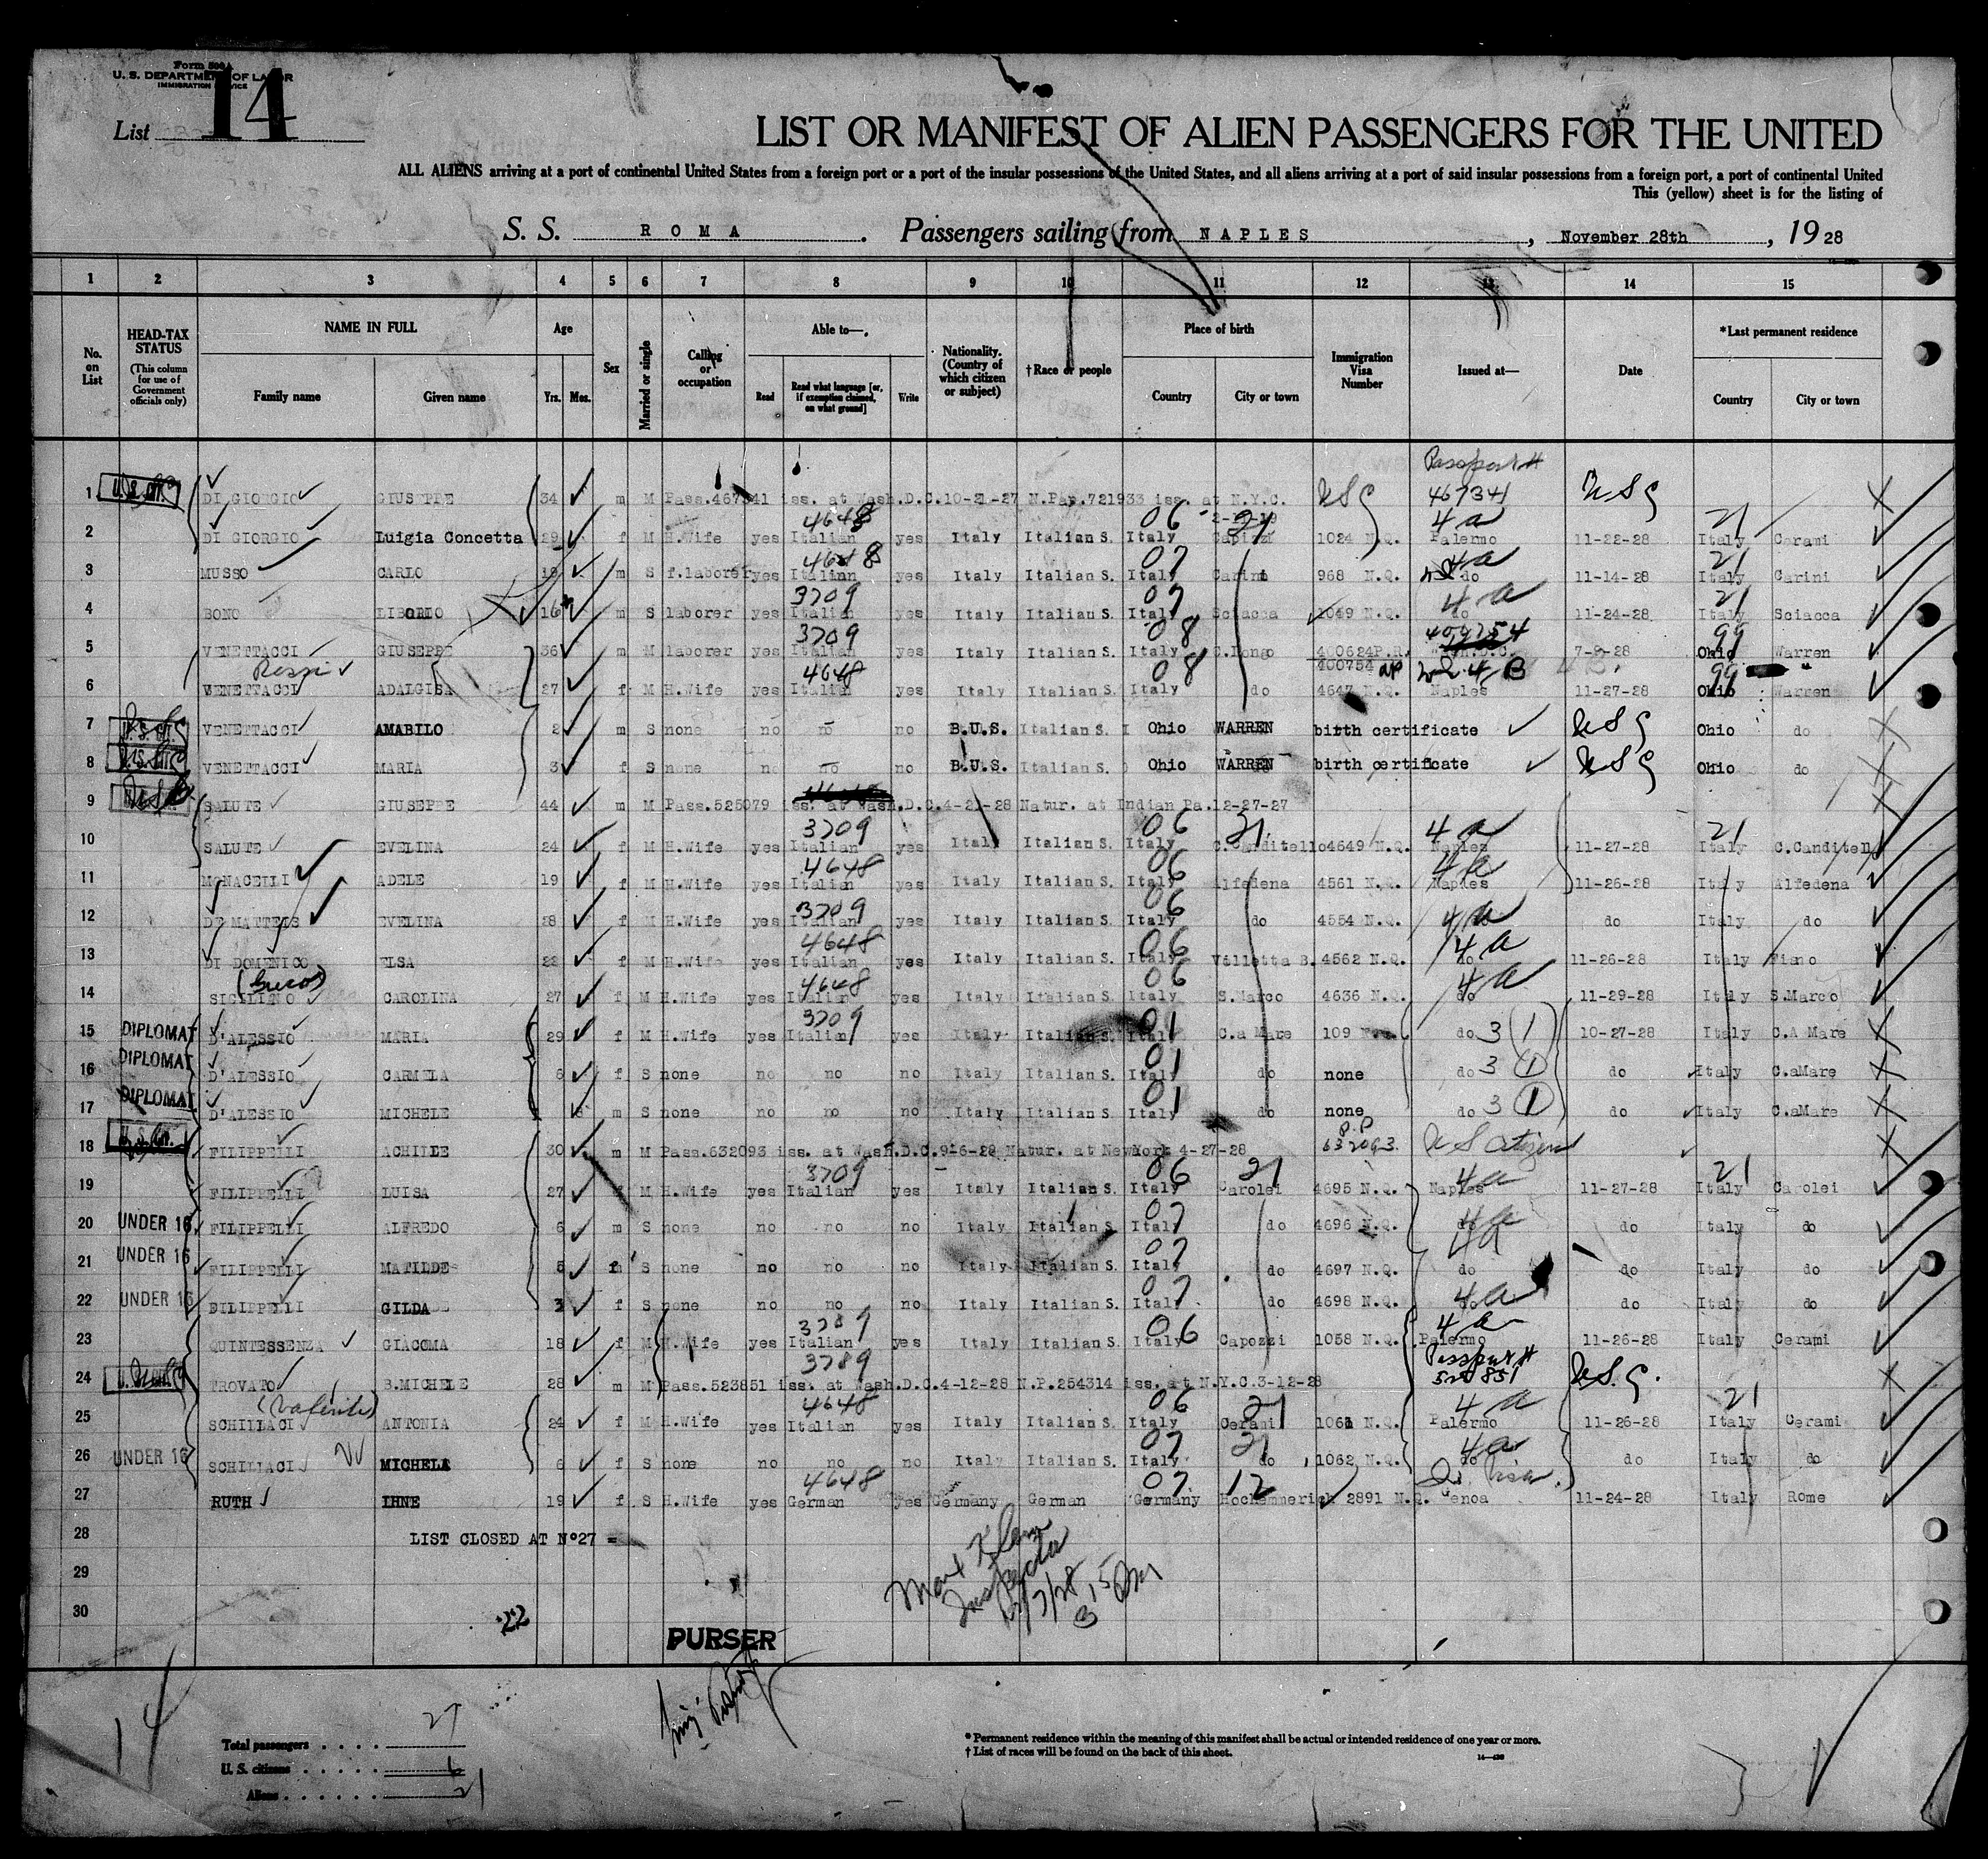 Form 500A
U. S. DEPARTMENT OF LABOR
IMMIGRATION SERVICE
List 14
LIST OR MANIFEST OF ALIEN PASSENGERS FOR THE UNITED
ALL ALIENS arriving at a port of continental United States from a foreign port or a port of the insular possessions of the United States, and all aliens arriving at a port of said insular possessions from a foreign port, a port of continental United
This (yellow) sheet is for the listing of
S. S. ROMA. Passengers sailing from NAPLES, November 28th, 1928
1 2 3 4 5 6 7 8 9 10 11 12 13 14 15
No. on List
HEAD-TAX STATUS (This column for use of Government officials only)
NAME IN FULL
Family name Given name
Age
Yrs. Mos.
Sex
Married or single
Calling or occupation
Able to—
Read Read what language [or, if exemption claimed, on what ground] Write
Nationality. (Country of which citizen or subject)
†Race or people
Place of birth
Country City or town
Immigration Visa Number
Issued at—
Date
*Last permanent residence
Country City or town
Passport #
1 U.S. CIT. DI GIORGIO GIUSEPPE 34 m M Pass.467341 iss. at Wash.D.C.10-21-27 N.Pap.721933 iss. at N.Y.C. USC 467341 USC
4648 06 21 4a 21
2 DI GIORGIO Luigia Concetta 29 f M H.Wife yes Italian yes Italy Italian S. Italy Capizzi 1024 N.Q. Palermo 11-22-28 Italy Cerami
4648 07 4a 21
3 MUSSO CARLO 19 m S f.laborer yes Italian yes Italy Italian S. Italy Carini 968 N.Q. do 11-14-28 Italy Carini
3709 07 4a 21
4 BONO LIBORIO 16 m S laborer yes Italian yes Italy Italian S. Italy Sciacca 1049 N.Q. do 11-24-28 Italy Sciacca
3709 08 400754 99
5 VENETTACCI GIUSEPPE 36 m M laborer yes Italian yes Italy Italian S. Italy C.Longo 400624P.R. Wash.D.C. 7-9-28 Ohio Warren
4648 08 400754 4 B 99
6 VENETTACCI ADALGISA 27 f M H.Wife yes Italian yes Italy Italian S. Italy do 4647 N.Q. Naples 11-27-28 Ohio Warren
7 U.S. CIT. VENETTACCI AMABILO 2 m S none no no no B.U.S. Italian S. Ohio WARREN birth certificate USC Ohio do
8 U.S. CIT. VENETTACCI MARIA 3 f S none no no no B.U.S. Italian S. Ohio WARREN birth certificate USC Ohio do
9 USC SALUTE GIUSEPPE 44 m M Pass.525079 iss. at Wash.D.C.4-21-28 Natur. at Indian Pa.12-27-27
3709 06 21 4a 21
10 SALUTE EVELINA 24 f M H.Wife yes Italian yes Italy Italian S. Italy C.Canditello 4649 N.Q. Naples 11-27-28 Italy C.Canditell
4648 06 4a
11 MONACELLI ADELE 19 f M H.Wife yes Italian yes Italy Italian S. Italy Alfedena 4561 N.Q. Naples 11-26-28 Italy Alfedena
3709 06 4a
12 DE MATTEIS EVELINA 28 f M H.Wife yes Italian yes Italy Italian S. Italy do 4554 N.Q. do do Italy do
4648 06 4a
13 DI DOMENICO ELSA 22 f M H.Wife yes Italian yes Italy Italian S. Italy Villetta B. 4562 N.Q. do 11-26-28 Italy Fiano
4648 06 4a
14 SICILIANO CAROLINA 27 f M H.Wife yes Italian yes Italy Italian S. Italy S.Marco 4636 N.Q. do 11-29-28 Italy S.Marco
3709 01
15 DIPLOMAT D'ALESSIO MARIA 29 f M H.Wife yes Italian yes Italy Italian S. Italy C.a Mare 109 do 3 (1) 10-27-28 Italy C.A Mare
01
16 DIPLOMAT D'ALESSIO CARMELA 6 f S none no no no Italy Italian S. Italy do none do 3 (1) do Italy C.aMare
01
17 DIPLOMAT D'ALESSIO MICHELE m S none no no no Italy Italian S. Italy do none do 3 (1) do Italy C.aMare
18 U.S. CIT. FILIPPELLI ACHILLE 30 m M Pass.632093 iss. at Wash.D.C.9-6-28 Natur. at NewYork 4-27-28 P.P 632093 US citizen
3709 06 21 4a 21
19 FILIPPELLI LUISA 27 f M H.Wife yes Italian yes Italy Italian S. Italy Carolei 4695 N.Q. Naples 11-27-28 Italy Carolei
07 4a
20 UNDER 16 FILIPPELLI ALFREDO 6 m S none no no no Italy Italian S. Italy do 4696 N.Q. do do Italy do
07 4a
21 UNDER 16 FILIPPELLI MATILDE 5 f S none no no no Italy Italian S. Italy do 4697 N.Q. do do Italy do
07 4a
22 UNDER 16 FILIPPELLI GILDA 3 f S none no no no Italy Italian S. Italy do 4698 N.Q. do do Italy do
3709 06 4a
23 QUINTESSENZA GIACOMA 18 f M H.Wife yes Italian yes Italy Italian S. Italy Capozzi 1058 N.Q. Palermo 11-26-28 Italy Cerami
3789 Passport #
24 U.S. CIT. TROVATO B.MICHELE 28 m M Pass.523851 iss. at Wash.D.C.4-12-28 N.P.254314 iss. at N.Y.C.3-12-28 523851 U.S.C.
4648 06 21 4a 21
25 SCHILLACI ANTONIA 24 f M H.Wife yes Italian yes Italy Italian S. Italy Cerami 1061 N.Q. Palermo 11-26-28 Italy Cerami
07 21 4a
26 UNDER 16 SCHILLACI MICHELA 6 f S none no no no Italy Italian S. Italy do 1062 N.Q. do do Italy do
4648 07 12
27 RUTH IHNE 19 f S H.Wife yes German yes Germany German Germany Hochemmerich 2891 N.Q. Genoa 11-24-28 Italy Rome
28 LIST CLOSED AT N°27 =
29
30
22
Inspector
12/7/28
PURSER
14
Total passengers . . . . 27
U. S. citizens . . . . . 6
Aliens . . . . . . 21
* Permanent residence within the meaning of this manifest shall be actual or intended residence of one year or more.
† List of races will be found on the back of this sheet.